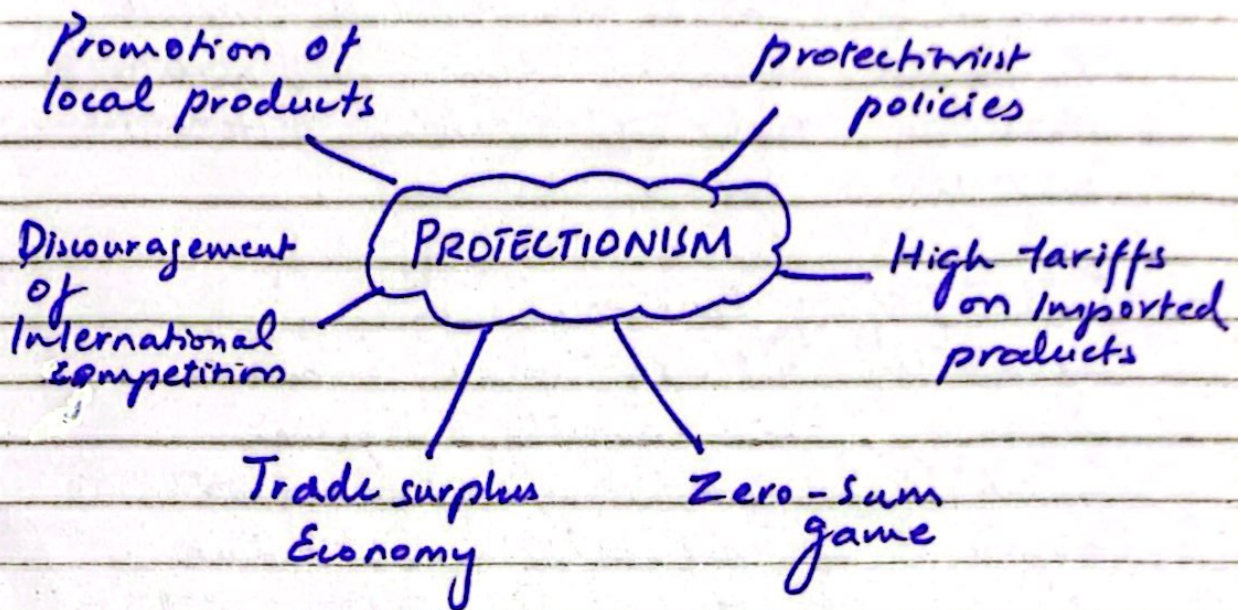 Promotion of
local products
protectionist
policies
PROTECTIONISM
Discouragement
of
International
competition
High tariffs
on Imported
products
Trade surplus
Economy
Zero-Sum
game